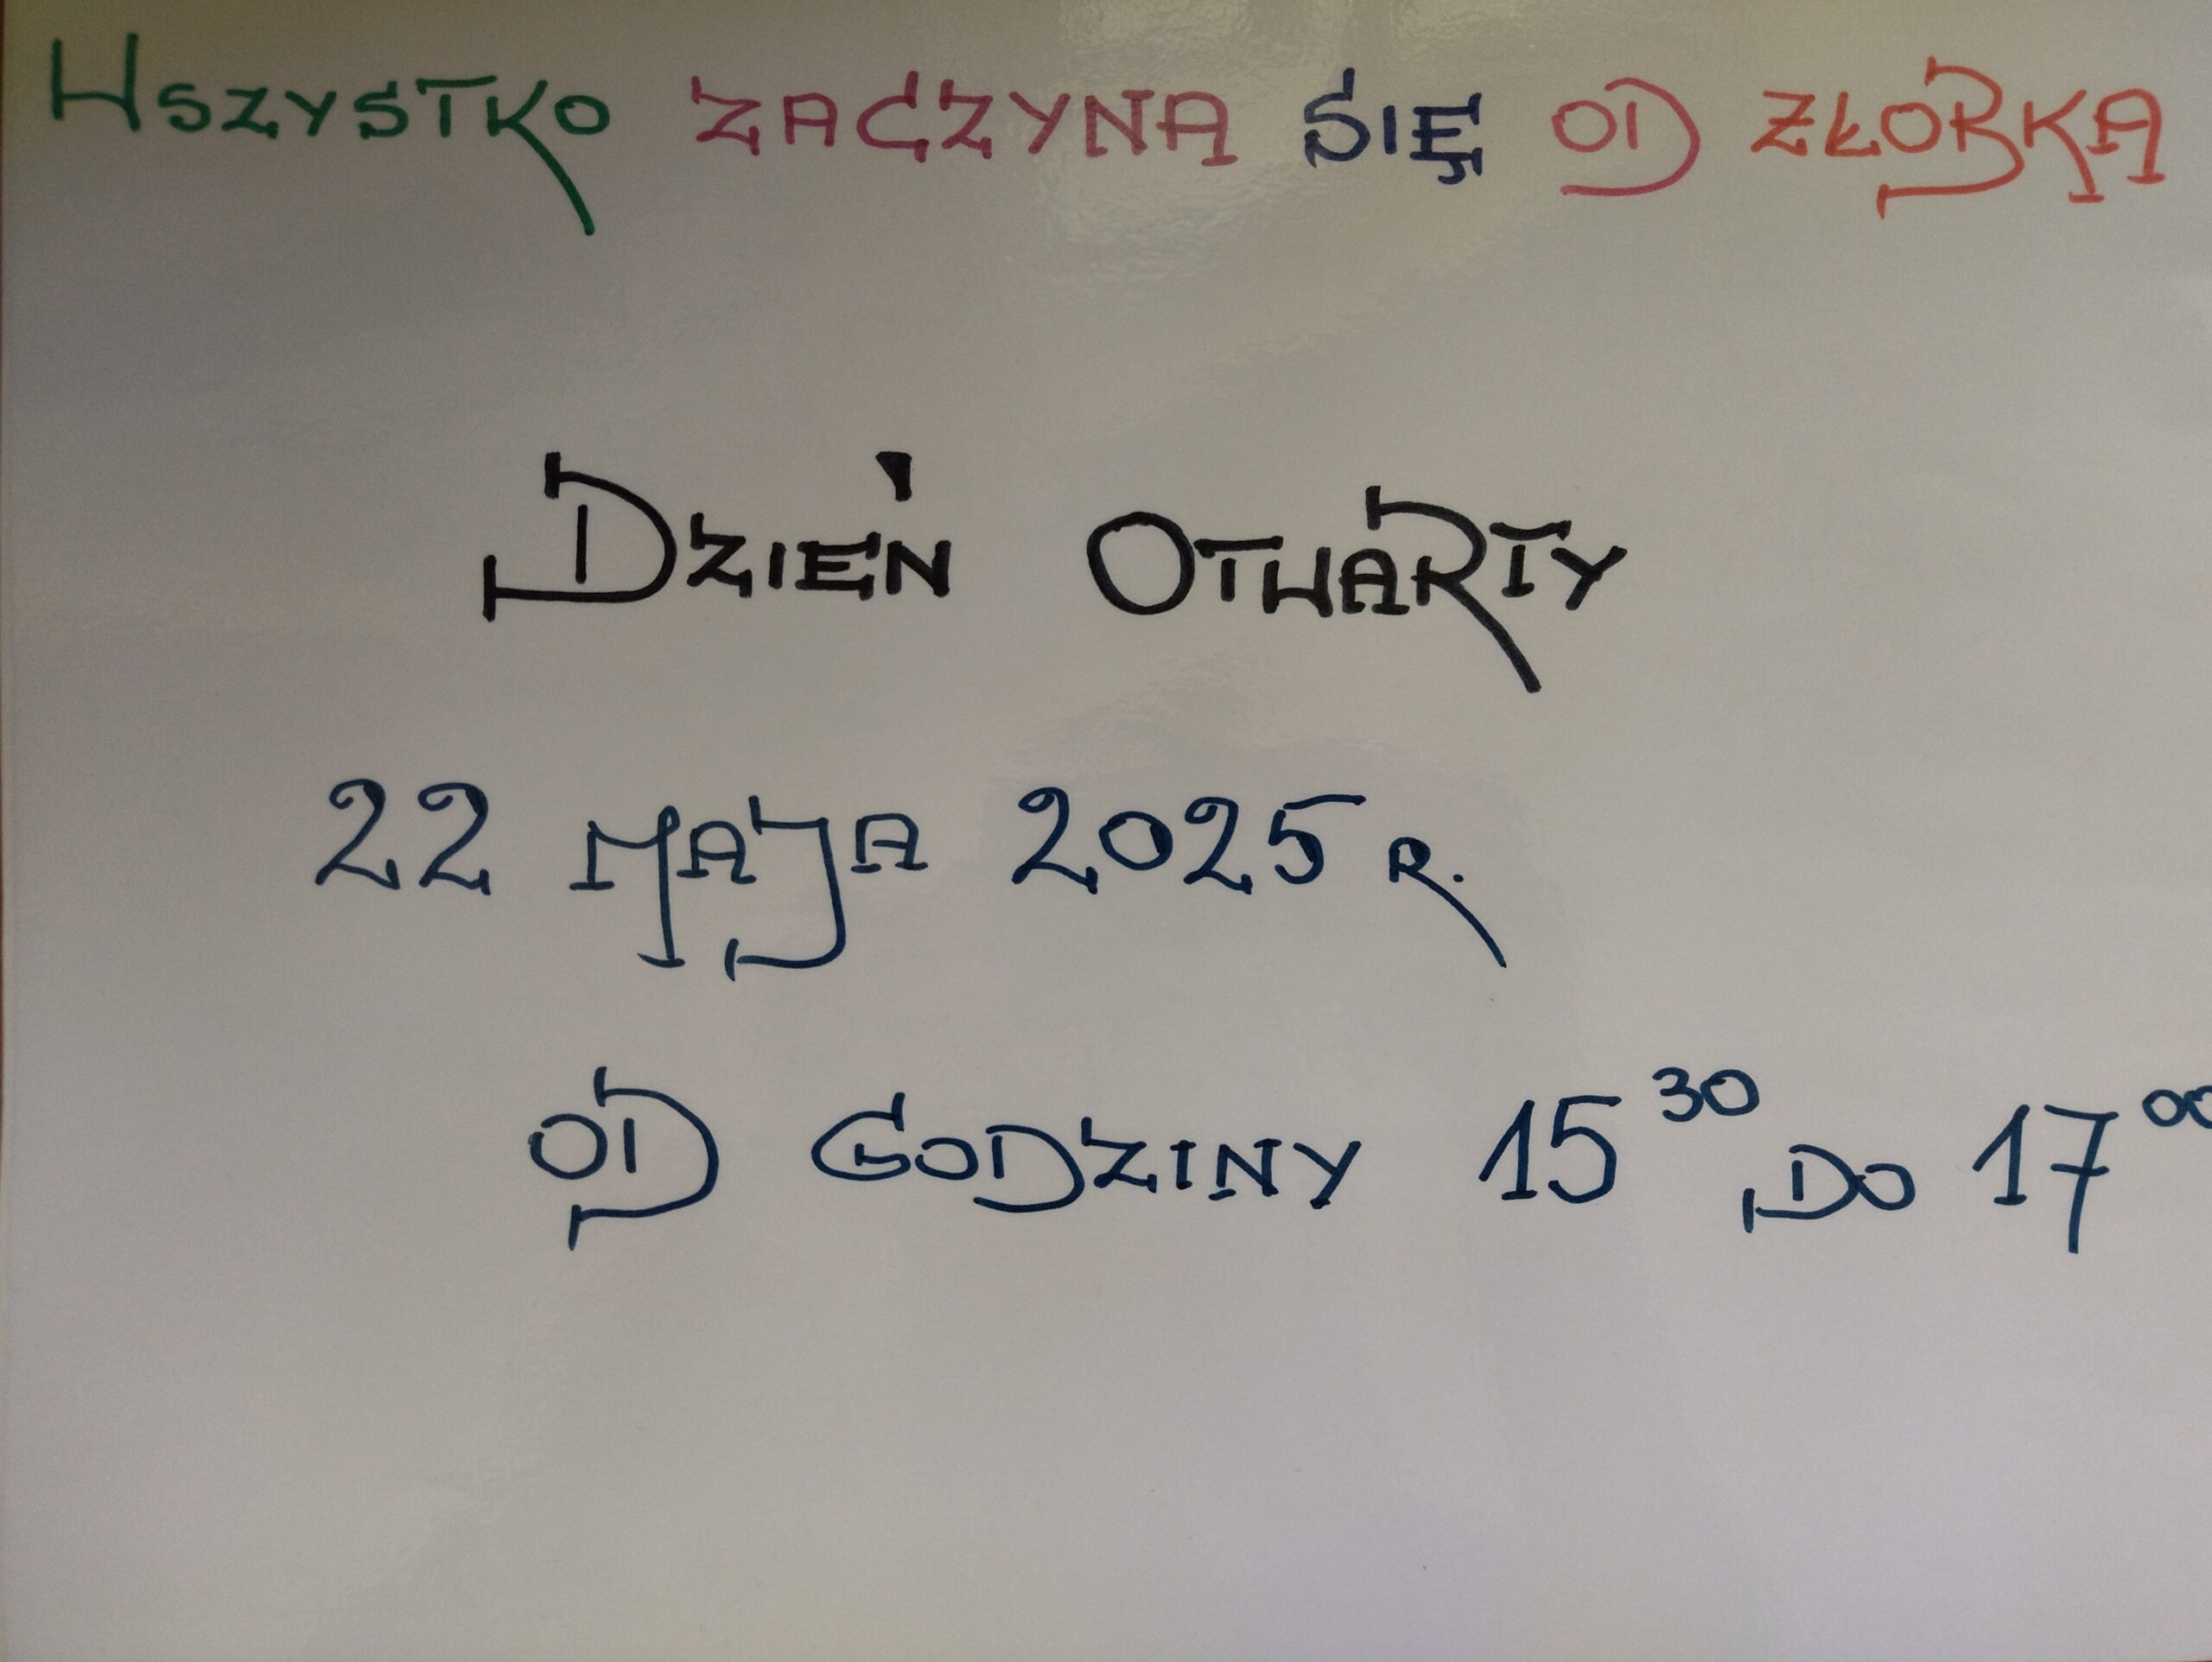 WSZYSTKO ZACZYNA SIĘ OD ZŁOBKA
DZIEŃ OTWARTY
22 MAJA 2025 R.
OD GODZINY 15³⁰ DO 17⁰⁰